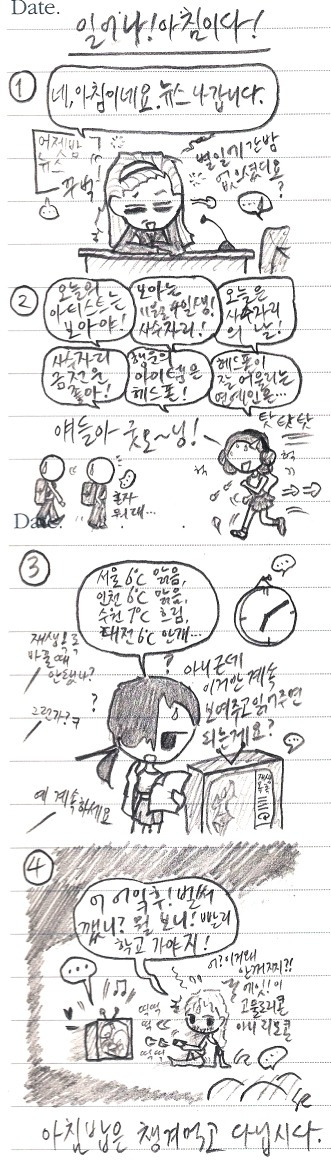 Date.
일어나!아침이다!
①
네,아침이네요.뉴스 나갑니다.
어젯밤
뉴스
꾸벅!
별일기 간밤
없으셨디요
?
②
오늘의
아티스트는
보아야!
보아는
11월4일생!
사수자리!
오늘은
사수자리
의 날!
사수자리
금전운
좋아!
행운의
아이템은
헤드폰!
헤드폰이
잘 어울리는
연예인은...
탓 탓 탓
얘들아 굿모~닝!
헉
헉
혼자
뭐래...
Date.
③
서울 6℃ 맑음,
인천 6℃ 맑음,
수원 7℃ 흐림,
대전 6℃ 안개...
재생목록
바꿀때
안됐나?
그런가?ㅋ
예 계속하세요
아니 근데
이거만 계속
보여주고 읽어주면
되는게요?
재생
목록
④
어 어익후! 벌써
깼니? 뭘 보니! 빨리
학교 가야지!
어? 이거 왜
안꺼지지?!
고물 리콜
아니 리모콘
띡띡
띡
띡띡
아침밥은 챙겨먹고 다닙시다.